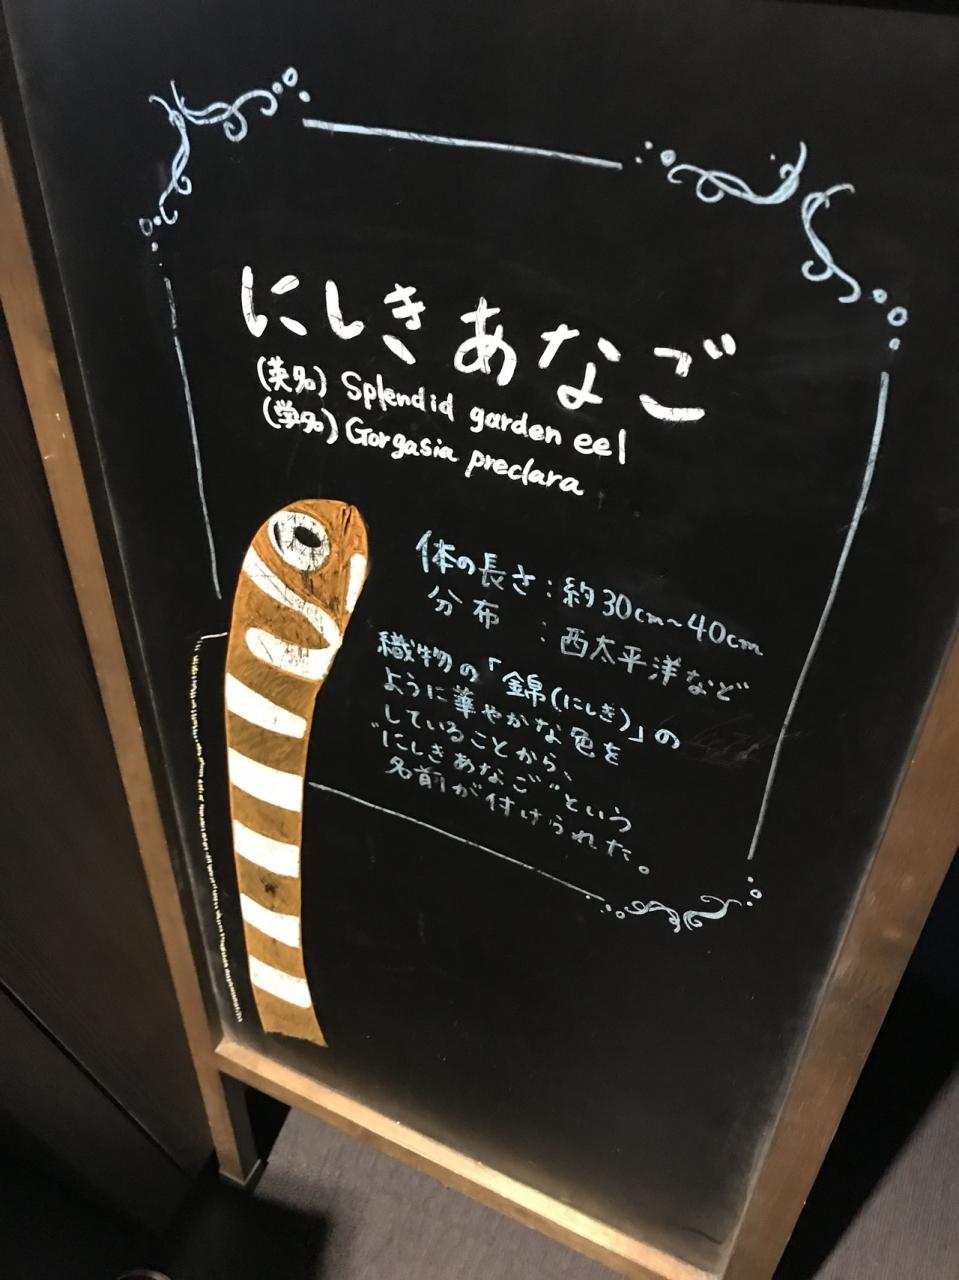 にしきあなご
(英名) Splendid garden eel
(学名) Gorgasia preclara
体の長さ：約30cm～40cm
分布　：西太平洋など
織物の「錦(にしき)」の
ように華やかな色を
していることから、
"にしきあなご"という
名前が付けられた。